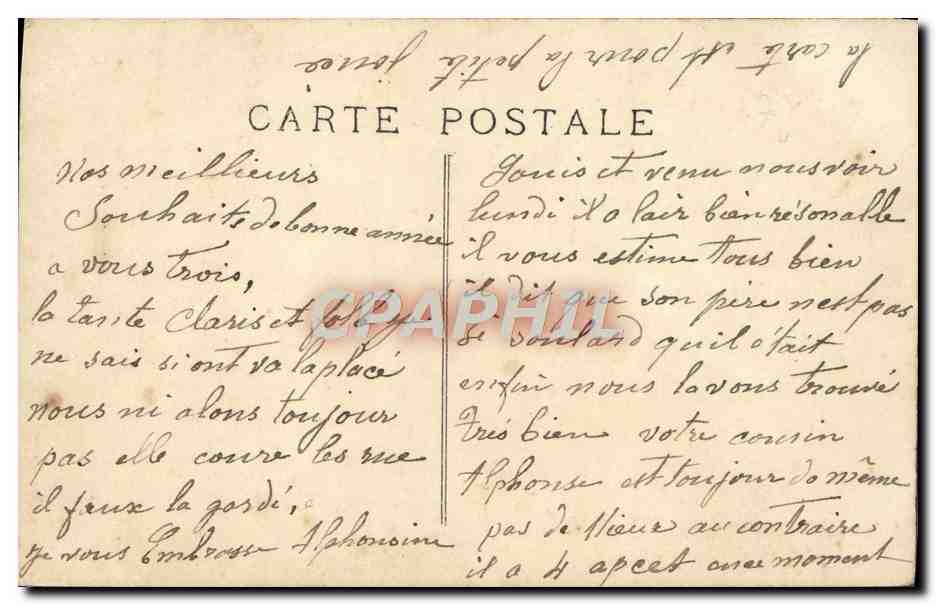 la carte est pour la petite
CARTE POSTALE
Nos meillieurs
Souhaits de bonne année
a vous trois,
la tante Claris et folle je
ne sais si ont va la placé
nous ni alons toujour
pas elle coure les rue
il faux la gardé,
je vous Embrasse Alphonsine
Louis et venu nous voir
lundi il a lair bien résonalle
il vous estime tous bien
il dit que son père nest pas
si soulard quil était
enfin nous lavons trouvé
très bien votre cousin
Alphonse est toujour de même
pas de Mieux au contraire
il a 4 apcet en ce moment
CPAPHIL